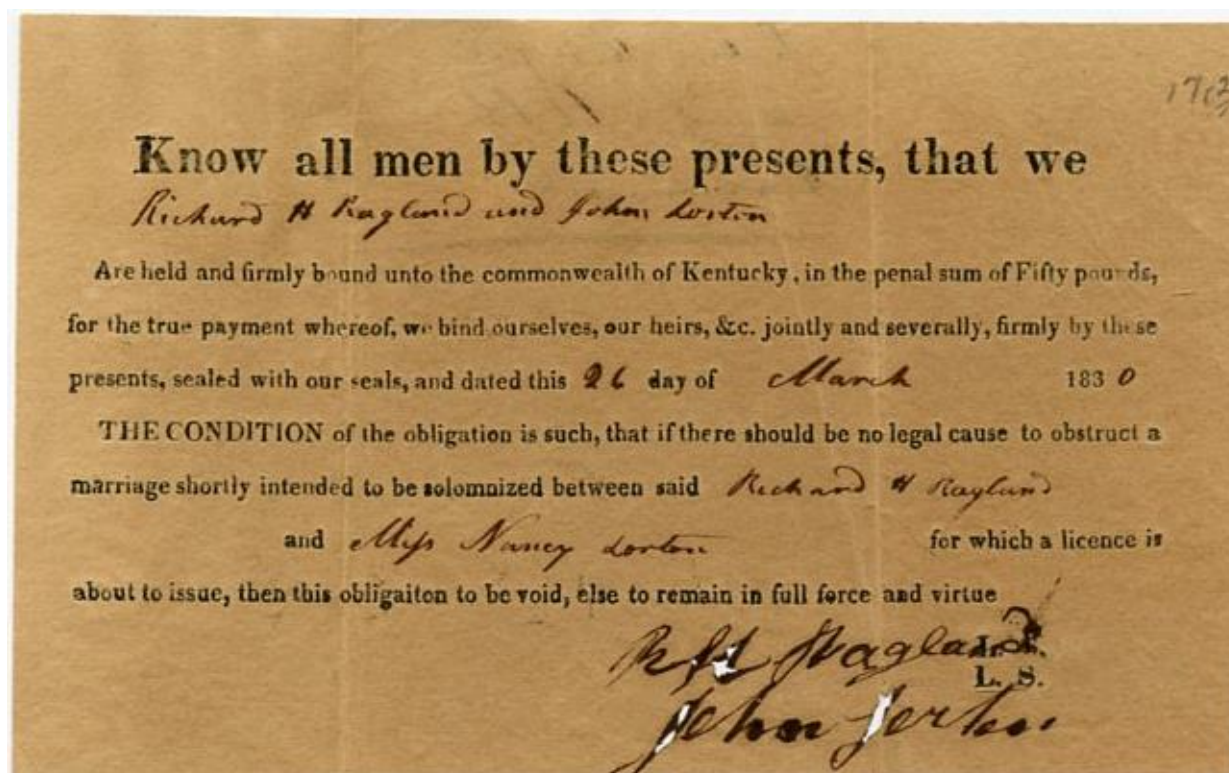 Know all men by these presents, that we
Richard H Ragland and John Lorton
Are held and firmly bound unto the commonwealth of Kentucky, in the penal sum of Fifty pounds,
for the true payment whereof, we bind ourselves, our heirs, &c. jointly and severally, firmly by these
presents, sealed with our seals, and dated this 26 day of March 1830
THE CONDITION of the obligation is such, that if there should be no legal cause to obstruct a
marriage shortly intended to be solomnized between said Richard H Ragland
and Miss Nancy Lorton for which a licence is
about to issue, then this obligaiton to be void, else to remain in full force and virtue
R H Ragland L. S.
L. S.
John